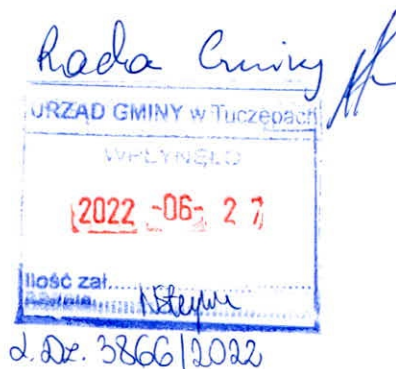 Rada Gminy
URZĄD GMINY w Tuczępach
WPŁYNĘŁO
2022 -06- 27
Ilość zał.
L.Dz. 3866/2022